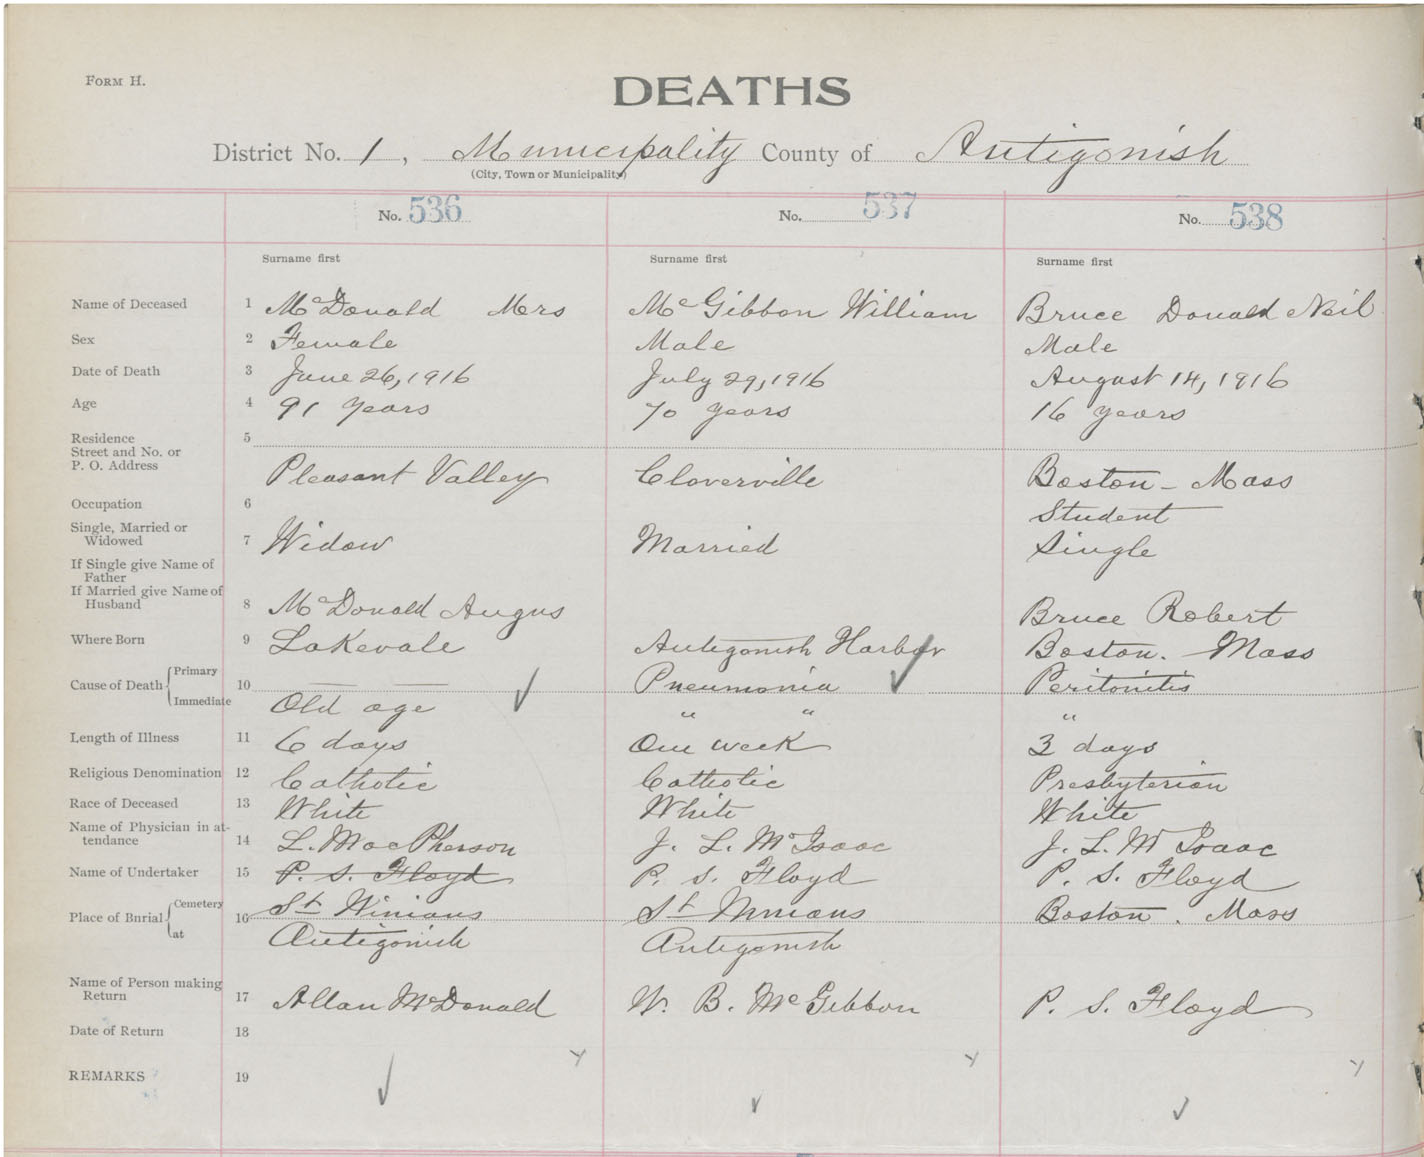 FORM H.
DEATHS
District No. 1, Municipality County of Antigonish
(City, Town or Municipality)
No. 536 No. 537 No. 538
Surname first Surname first Surname first
Name of Deceased 1 McDonald Mrs McGibbon William Bruce Donald Neil
Sex 2 Female Male Male
Date of Death 3 June 26, 1916 July 29, 1916 August 14, 1916
Age 4 91 years 70 years 16 years
Residence 5
Street and No. or
P. O. Address Pleasant Valley Cloverville Boston - Mass
Occupation 6 Student
Single, Married or
Widowed 7 Widow Married Single
If Single give Name of
Father
If Married give Name of
Husband 8 McDonald Angus Bruce Robert
Where Born 9 Lakevale Antigonish Harbor Boston. Mass
Cause of Death Primary 10 Pneumonia Peritonitis
Immediate Old age " " "
Length of Illness 11 6 days One week 3 days
Religious Denomination 12 Catholic Catholic Presbyterian
Race of Deceased 13 White White White
Name of Physician in at-
tendance 14 L. MacPherson J. L. McIsaac J. L. McIsaac
Name of Undertaker 15 P. S. Floyd P. S. Floyd P. S. Floyd
Place of Burial Cemetery 16 St Ninians St Ninians Boston. Mass
at Antigonish Antigonish
Name of Person making
Return 17 Allan McDonald W. B. McGibbon P. S. Floyd
Date of Return 18
REMARKS 19